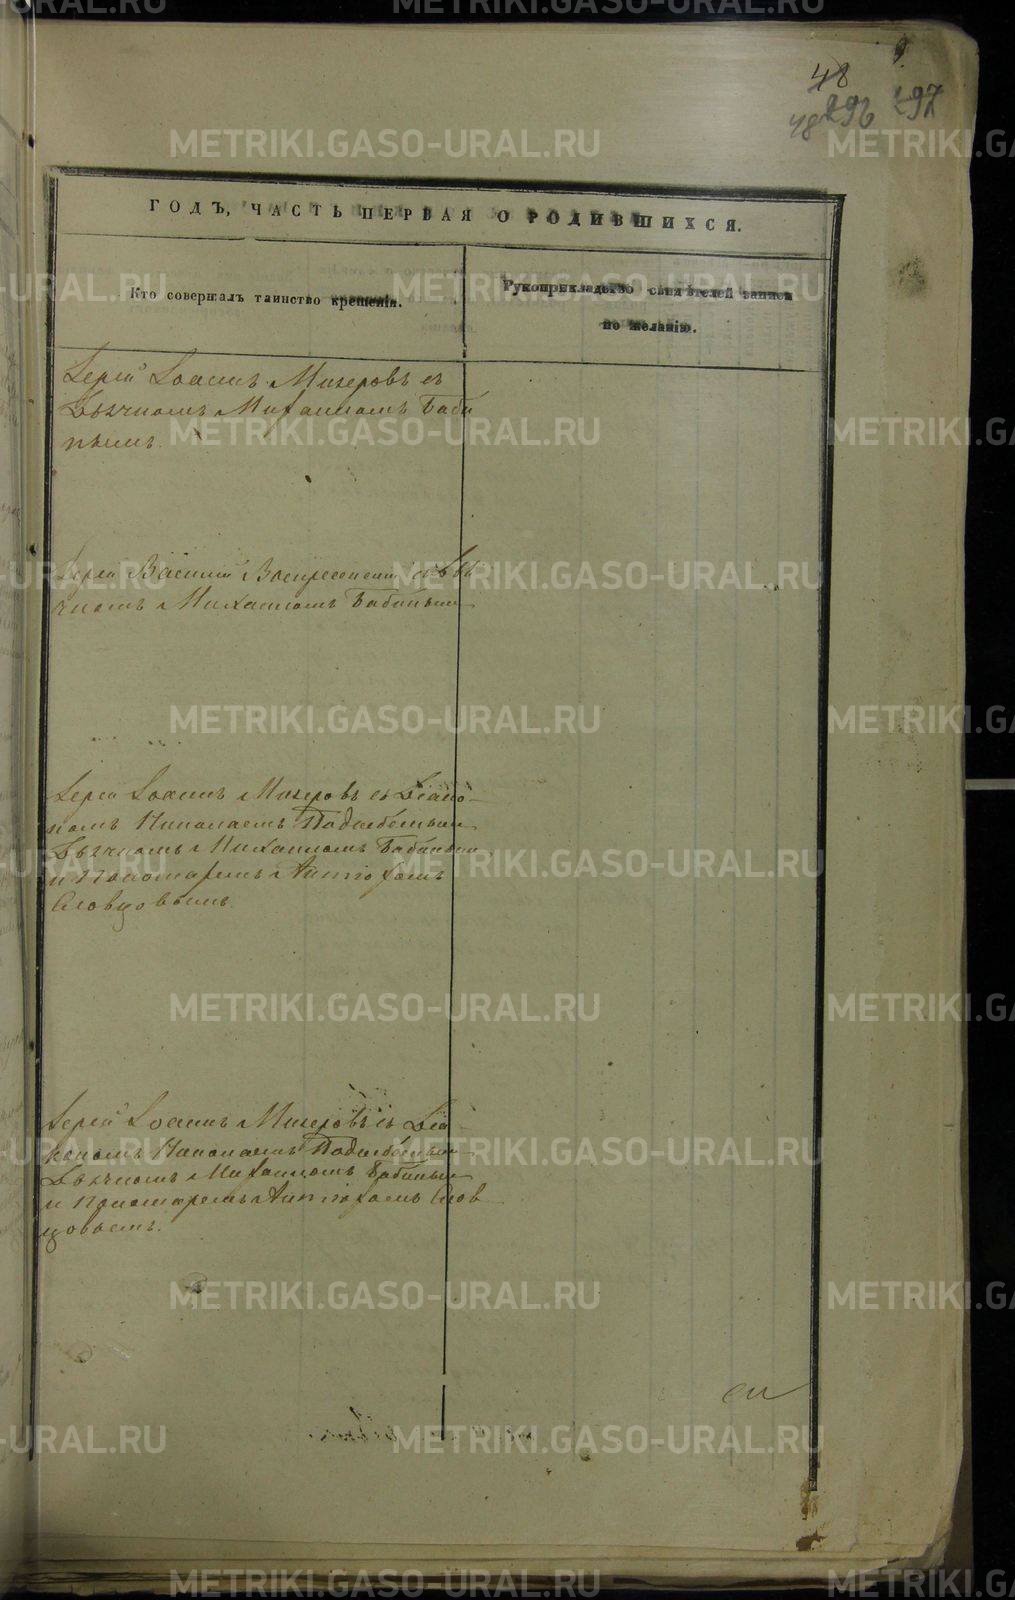 48
48 296 297
ГОДЪ, ЧАСТЬ ПЕРВАЯ О РОДИВШИХСЯ.
Кто совершалъ таинство крещенія.
Рукоприкладство свидѣтелей записи
по желанію.
Іерей Іоаннъ Мизеровъ съ
Дьячкомъ Михаиломъ Баби
нымъ.
Іерей Василій Воскресенскій съ Дья
чкомъ Михаиломъ Бабинымъ
Іерей Іоаннъ Мизеровъ съ Діако
номъ Николаемъ
Дьячкомъ Михаиломъ Бабинымъ
и Пономаремъ
Словцовымъ.
Іерей Іоаннъ Мизеровъ съ Діа
кономъ Николаемъ
Дьячкомъ Михаиломъ Бабинымъ
и Пономаремъ Слов
цовымъ.
METRIKI.GASO-URAL.RU